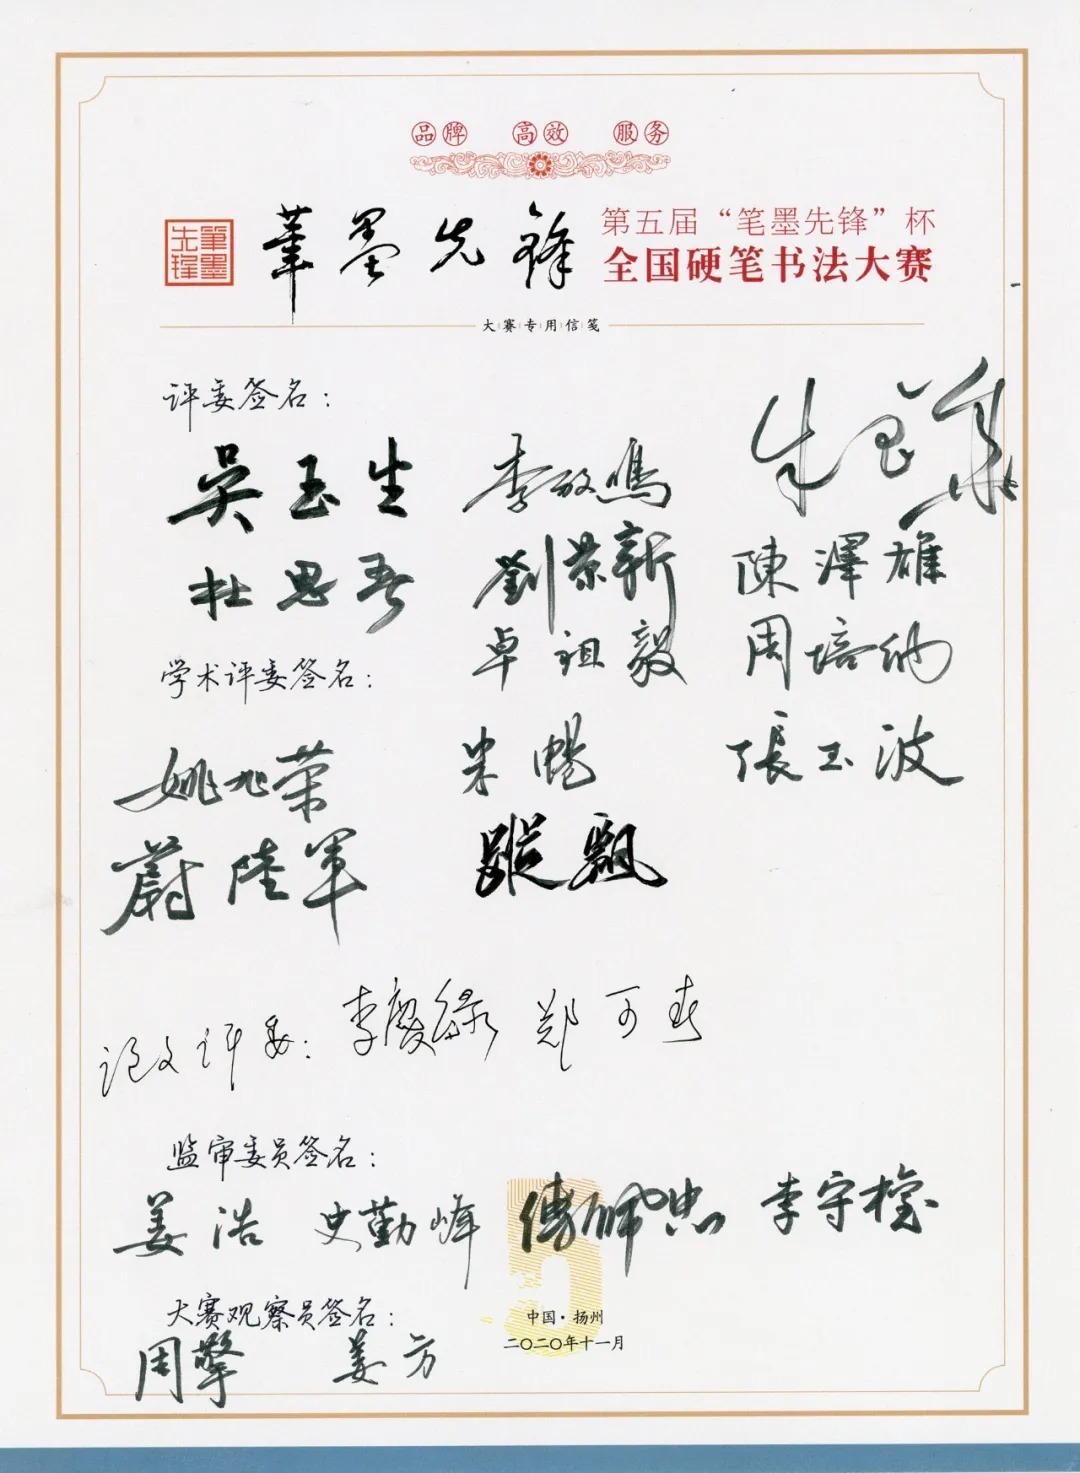 品牌 高效 服务
筆墨先锋
筆墨先锋 第五届“笔墨先锋”杯
全国硬笔书法大赛
大赛专用信笺
评委签名：
吴玉生 李放鸣
杜思吾 劉荣新 陳澤雄
卓祖毅 周培纳
学术评委签名：
姚兆荣 朱暢 張玉波
蔚陸军 蹤飄
论文评委： 李慶绿 郑可春
监审委员签名：
姜浩 史勤峰 傅佩忠 李守栓
大赛观察员签名：
周擎 姜方
中国·扬州
二〇二〇年十一月